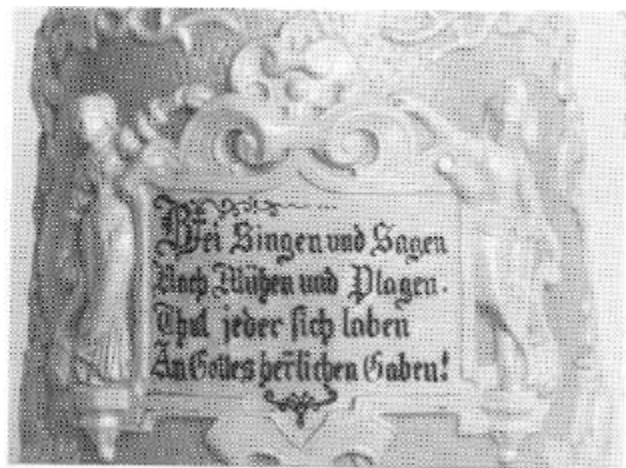 Bei Singen und Sagen
Nach Mühen und Plagen.
Thut jeder sich laben
An Gottes her̄lichen Gaben!